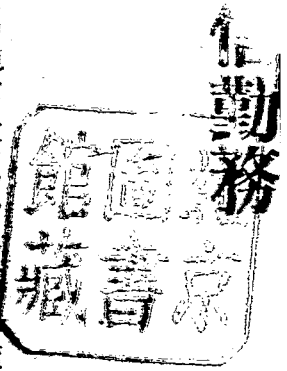 勤務
京
圖書
館藏